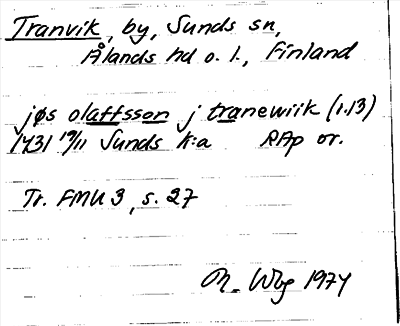 Tranvik, by, Sunds sn,
Ålands hd o. l., Finland
jøs olaffsson j tranewiik (1.13)
1431 19/11 Sunds k:a RAp or.
Tr. FMU 3, s. 27
M. Wbg 1974